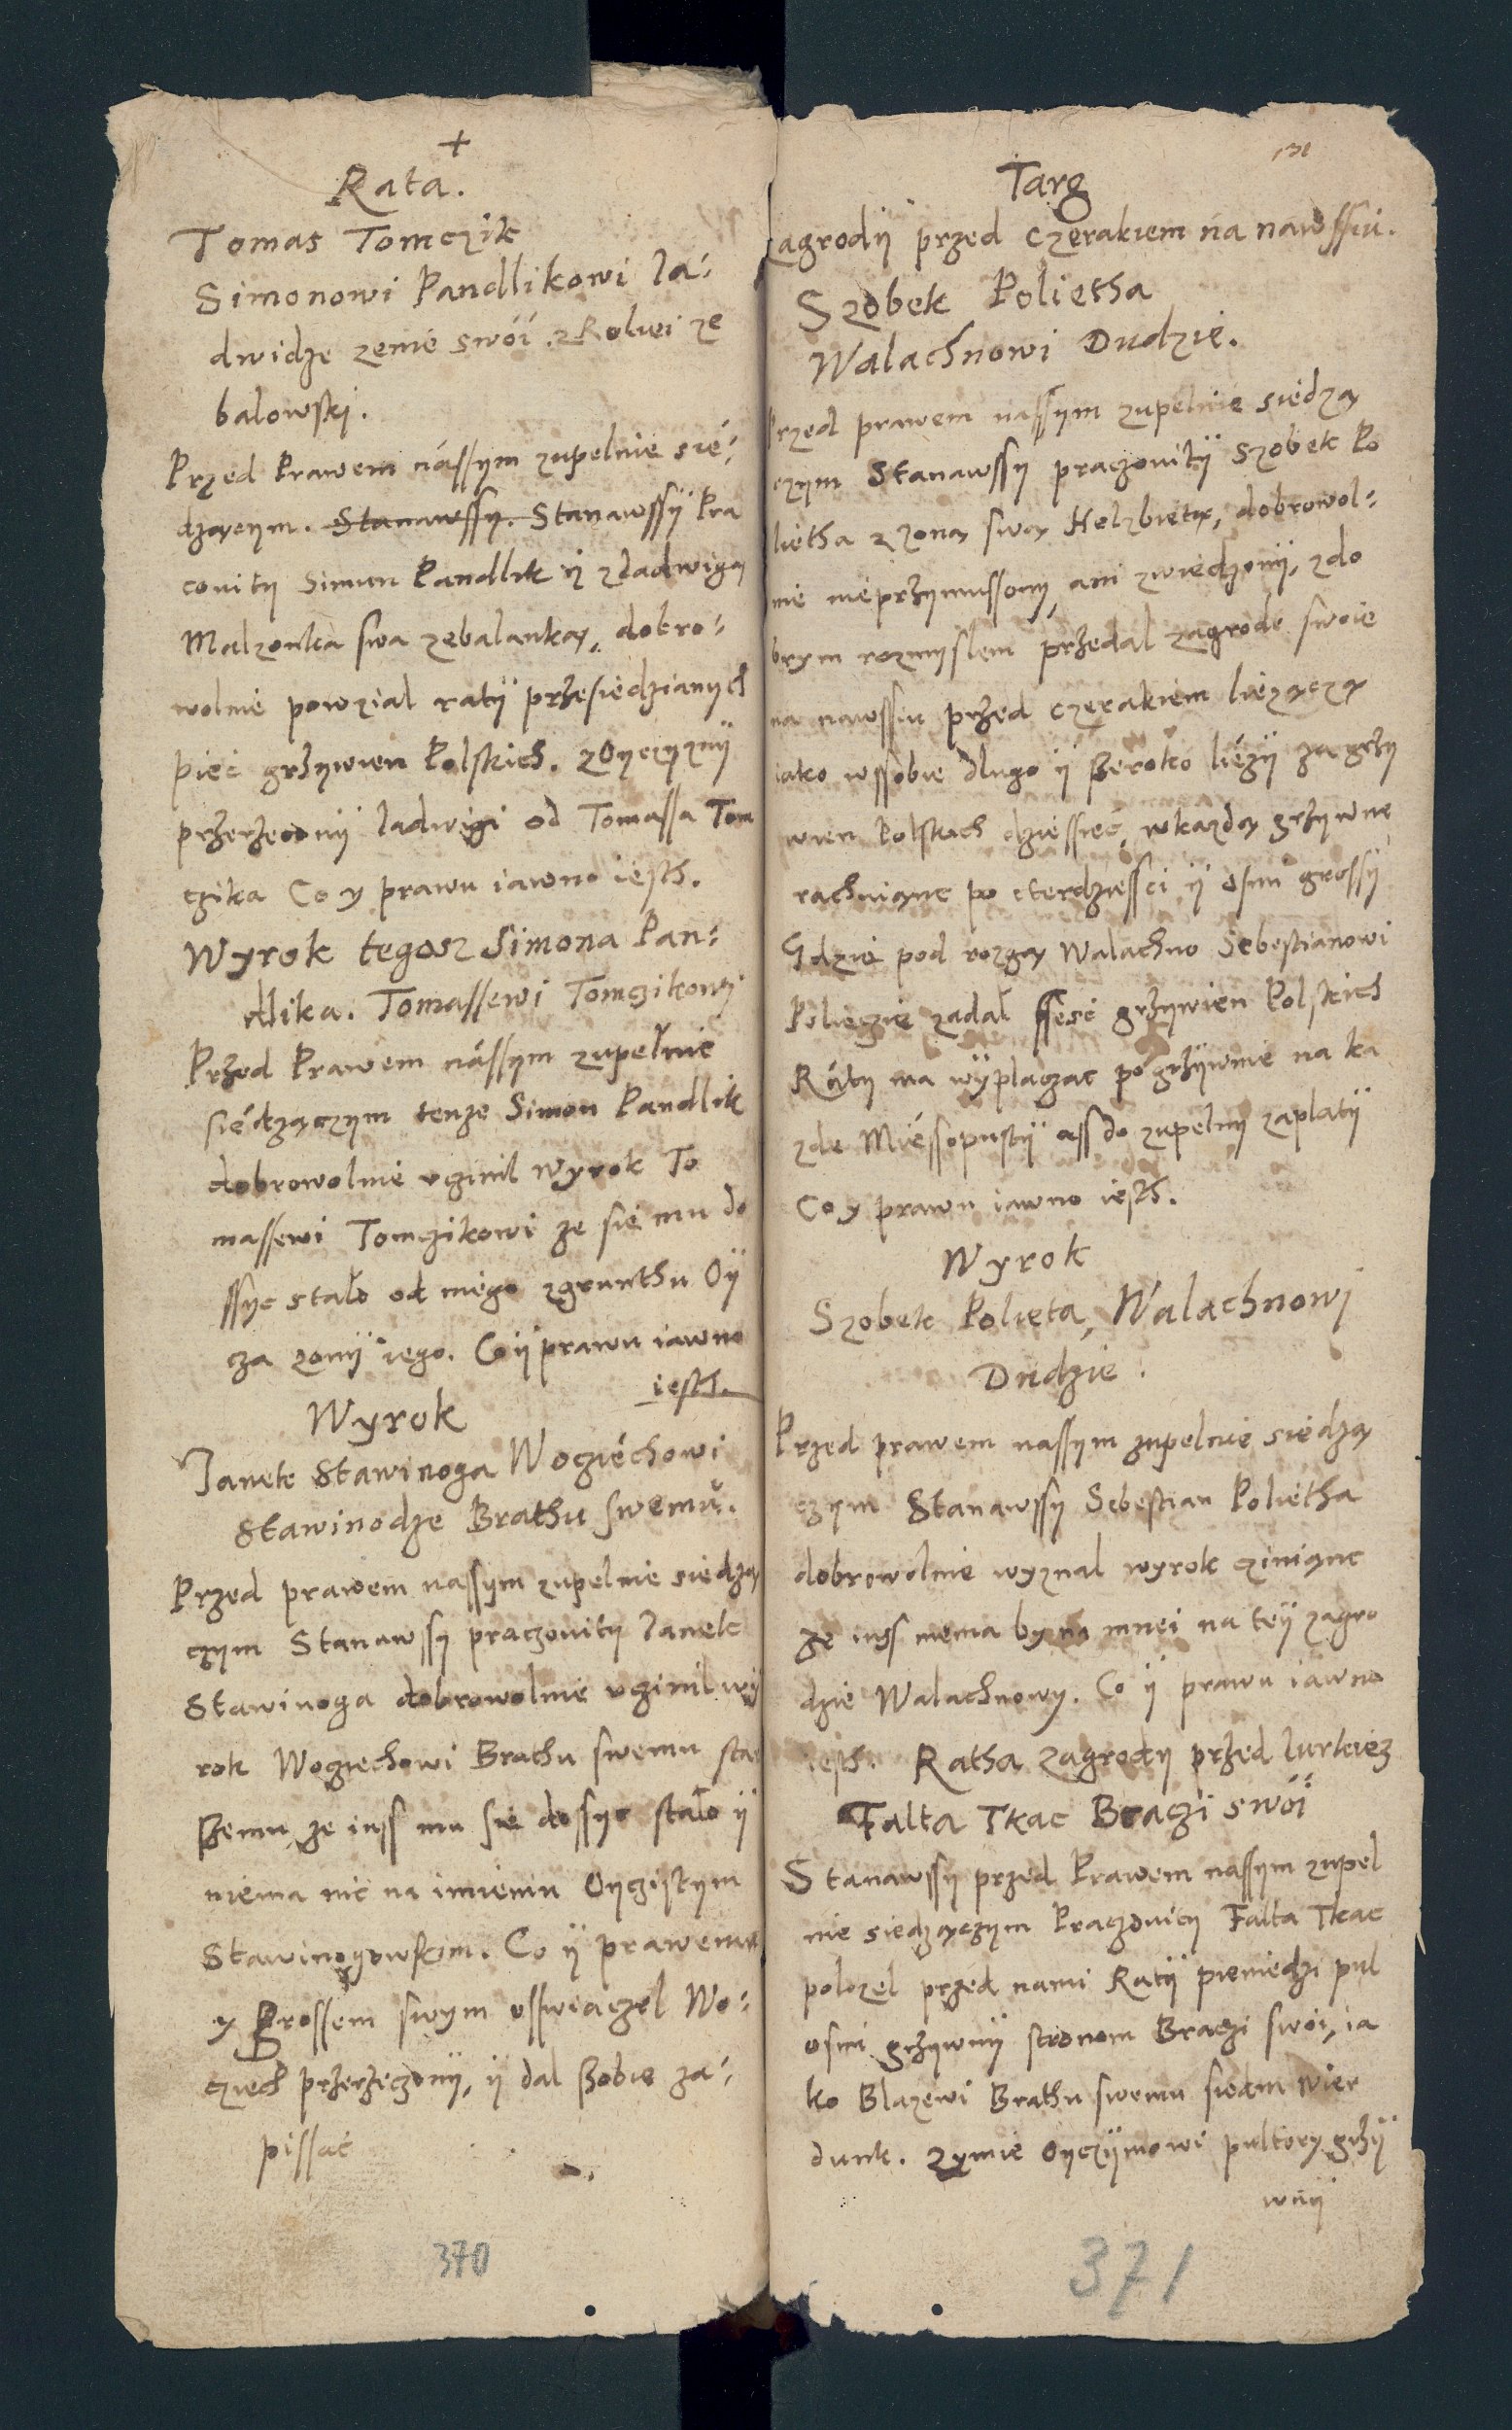 +
Rata.
Tomas Tomczik
Simonowi Pandlikowi Ja-
dwidze zenie swoi z Roliei ze
balowski.
Przed Prawem nássym zupelnie sie-
dzącym. Stanawssy. Stanawssÿ Pra
couitÿ Simun Pandlik ÿ z Jadwigą
Malzonka swa zebalanką, dobro-
wolnie powzial ratÿ przesiedzianÿch
pieć grzywien Polskich. z Oÿczÿznÿ
przerzeconÿ Jadwigi od Tomassa Tom
czika Co y prawu iawno iesth.
Wyrok tegosz Simona Pan-
dlika. Tomassewi Tomczikowi
Przed Prawem nássym zupełnie
siedzączym tenze Simon Pandlik
dobrowolnie vczinil wyrok To
massewi Tomczikowi ze sie mu do
ssyc stało od niego z grunthu Oÿ
cza zonÿ iego. Co ÿ prawu iawno
iesth.
Wyrok
Janek Stawinoga Wogiechowi
Stawinodze Brathu swemu.
Przed prawem nassym zupelnie siedzą
czym Stanawssy praczouity Janek
Stawinoga dobrowolnie vczinil wÿ
rok Wogiechowi Brathu swemu star
szemu, ze iuss mu sie dossyc stało ÿ
niema nic na imieniu Oyczistym
Stawinogowskim. Co ÿ prawemu
y Grossem swym osswiaczel Wo-
czech przerzeczonÿ, ÿ dal szobie za-
pissać
370
131
Targ
Zagrodÿ przed czerakiem na nawssiu.
Szobek Polietha
Walachnowi Dudzie.
Przed prawem nassym zupelnie siedzą
czym Stanawssy praczouitÿ Szobek Po
lietha z zoną swą Helzbietą, dobrowol-
nie nieprzymussony, ani zwiedzonÿ, z do
brym rozmyslem przedal zagrode swoie
na nawssiu przed czerakiem liezączą
iako wssobie dlugo ÿ szeroko liezÿ za grzy
wien Polskich dziessieć, w kazdą grzywne
rachuiąnc po cterdziessci ÿ osmi grossÿ
Gdzie pod rozgą Walachno Sebestianowi
Polieczie zadał ssesć grzywien Polskich
Ráty ma wÿplaczac po grzÿwnie na ka
zde Miéssopustÿ ass do zupelny zaplatÿ
Co y prawu iawno iesth.
Wyrok
Szobek Polieta, Walachnowi
Dudzie.
Przed prawem nassym zupelnie siedzą
czym Stanawssy Sebestian Polietha
dobrowolnie wyznal wyrok cziniąnc
ze iuss niema by na mnei na teÿ zagro
dzie Walachnowy. Co ÿ prawu iawno
iesth. Ratha zagrody przed Jurkiez
Falta Tkac Braczi swoi
Stanawssy przed Prawem nassym zupel
nie siedzączym Praczouity Falta Tkac
polozel przed nami Ratÿ pieniedzi pul
osmi grzywnÿ stronom Braczi swoi, ia
ko Blazewi Brathu swemu siedm wier
dunk. Oyczÿmowi pultory grzÿ
wnÿ
371